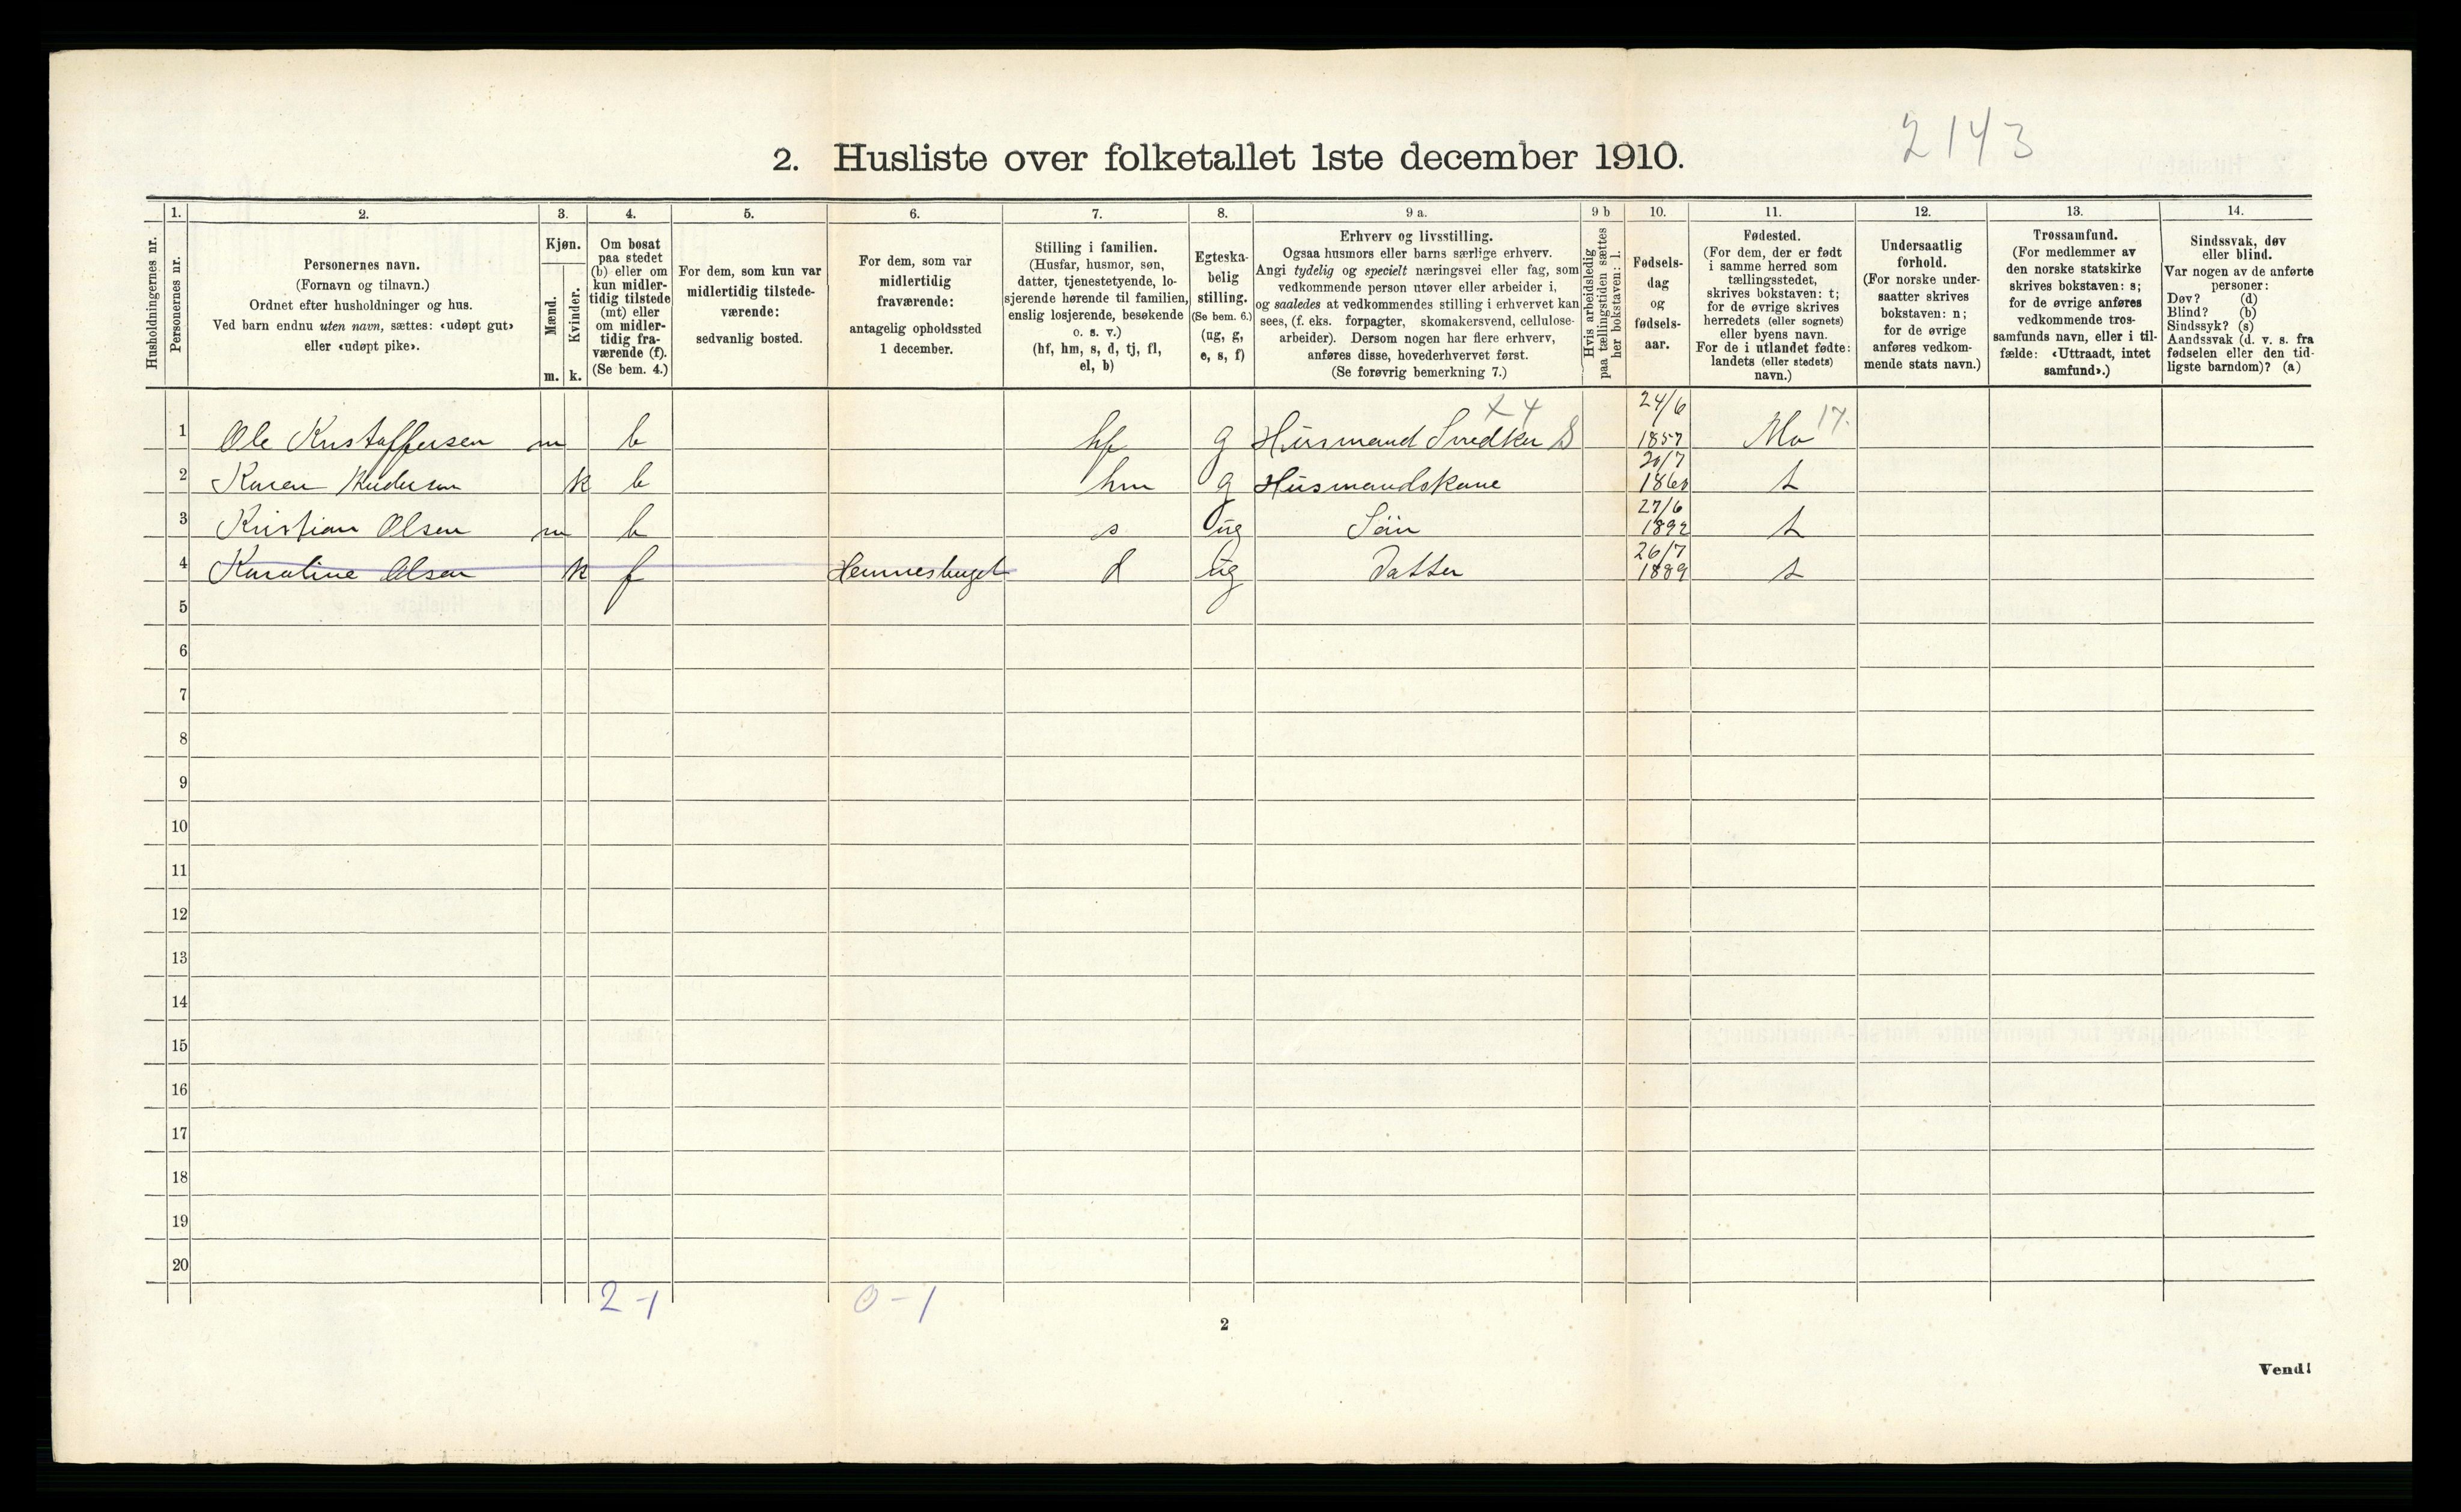 2143
2. Husliste over folketallet 1ste december 1910.
1. 2. 3. 4. 5. 6. 7. 8. 9 a. 9 b 10. 11. 12. 13. 14.
Husholdningernes nr.
Personernes nr.
Personernes navn.
(Fornavn og tilnavn.)
Ordnet efter husholdninger og hus.
Ved barn endnu uten navn, sættes: «udøpt gut»
eller «udøpt pike».
Kjøn.
Mænd.
Kvinder.
m. k.
Om bosat
paa stedet
(b) eller om
kun midler-
tidig tilstede
(mt) eller
om midler-
tidig fra-
værende (f).
(Se bem. 4.)
For dem, som kun var
midlertidig tilstede-
værende:
sedvanlig bosted.
For dem, som var
midlertidig
fraværende:
antagelig opholdssted
1 december.
Stilling i familien.
(Husfar, husmor, søn,
datter, tjenestetyende, lo-
sjerende hørende til familien,
enslig losjerende, besøkende
o. s. v.)
(hf, hm, s, d, tj, fl,
el, b)
Egteska-
belig
stilling.
(Se bem. 6.)
(ug, g,
e, s, f)
Erhverv og livsstilling.
Ogsaa husmors eller barns særlige erhverv.
Angi tydelig og specielt næringsvei eller fag, som
vedkommende person utøver eller arbeider i,
og saaledes at vedkommendes stilling i erhvervet kan
sees, (f. eks. forpagter, skomakersvend, cellulose-
arbeider). Dersom nogen har flere erhverv,
anføres disse, hovederhvervet først.
(Se forøvrig bemerkning 7.)
Hvis arbeidsledig
paa tællingstiden sættes
her bokstaven: l.
Fødsels-
dag
og
fødsels-
aar.
Fødested.
(For dem, der er født
i samme herred som
tællingsstedet,
skrives bokstaven: t;
for de øvrige skrives
herredets (eller sognets)
eller byens navn.
For de i utlandet fødte:
landets (eller stedets)
navn.)
Undersaatlig
forhold.
(For norske under-
saatter skrives
bokstaven: n;
for de øvrige
anføres vedkom-
mende stats navn.)
Trossamfund.
(For medlemmer av
den norske statskirke
skrives bokstaven: s;
for de øvrige anføres
vedkommende tros-
samfunds navn, eller i til-
fælde: «Uttraadt, intet
samfund».)
Sindssvak, døv
eller blind.
Var nogen av de anførte
personer:
Døv? (d)
Blind? (b)
Sindssyk? (s)
Aandssvak (d. v. s. fra
fødselen eller den tid-
ligste barndom)? (a)
X 4 24/6 17.
1 Ole Kristoffersen m b hf g Husmand Snedker S 1857 Mo
20/7
2 Karen k b hm g Husmandskone t
27/6
3 Kristian Olsen m b s ug Sön 1892 t
26/7
4 Karoline Olsen k f d ug Datter 1889 t
5
6
7
8
9
10
11
12
13
14
15
16
17
18
19
20
2-1 0-1
2
Vend!